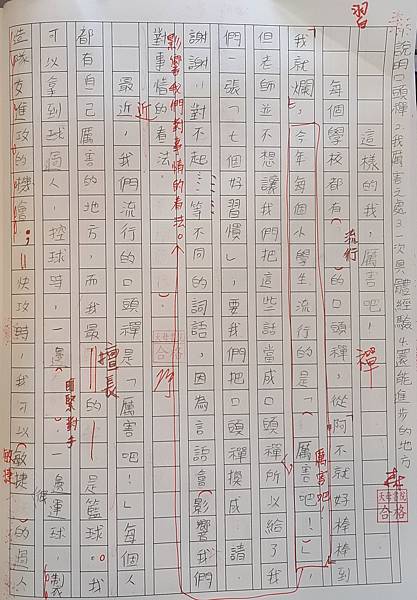 習
說明口頭禪2.我厲害之處3.一次具體經驗4.還能進步的地方
這樣的我,厲害吧!
禪
每個學校都有的口頭禪,從「阿不就好棒棒」到
流行
我就爛」,今年每個小學生流行的是「厲害吧!」,
厲害吧!
但老師並不想讓我們把這些話當成口頭禪所以給了我
們一張「七個好習慣」,要我們把口頭禪換成「請、
謝謝、對不起……」等不同的詞語,因為言語會影響我們
影響我們對事情的看法。
對事情的看法。
合格
最近,我們流行的口頭禪是「厲害吧!」每個人
近
都有自己厲害的地方,而我最的是籃球。我
擅長
可以拿到球過人,控球時,一邊一邊運球,製
眼緊對手
造隊友進攻的機會;快攻時,我可以敏捷的過人
敏捷
合格